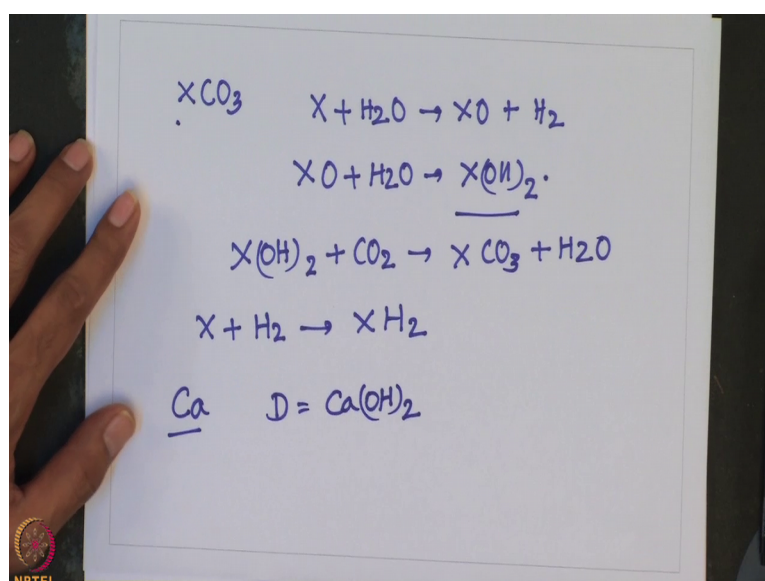 XCO₃ X + H₂O → XO + H₂
XO + H₂O → X(OH)₂.
X(OH)₂ + CO₂ → XCO₃ + H₂O
X + H₂ → XH₂
Ca D = Ca(OH)₂
NPTEL